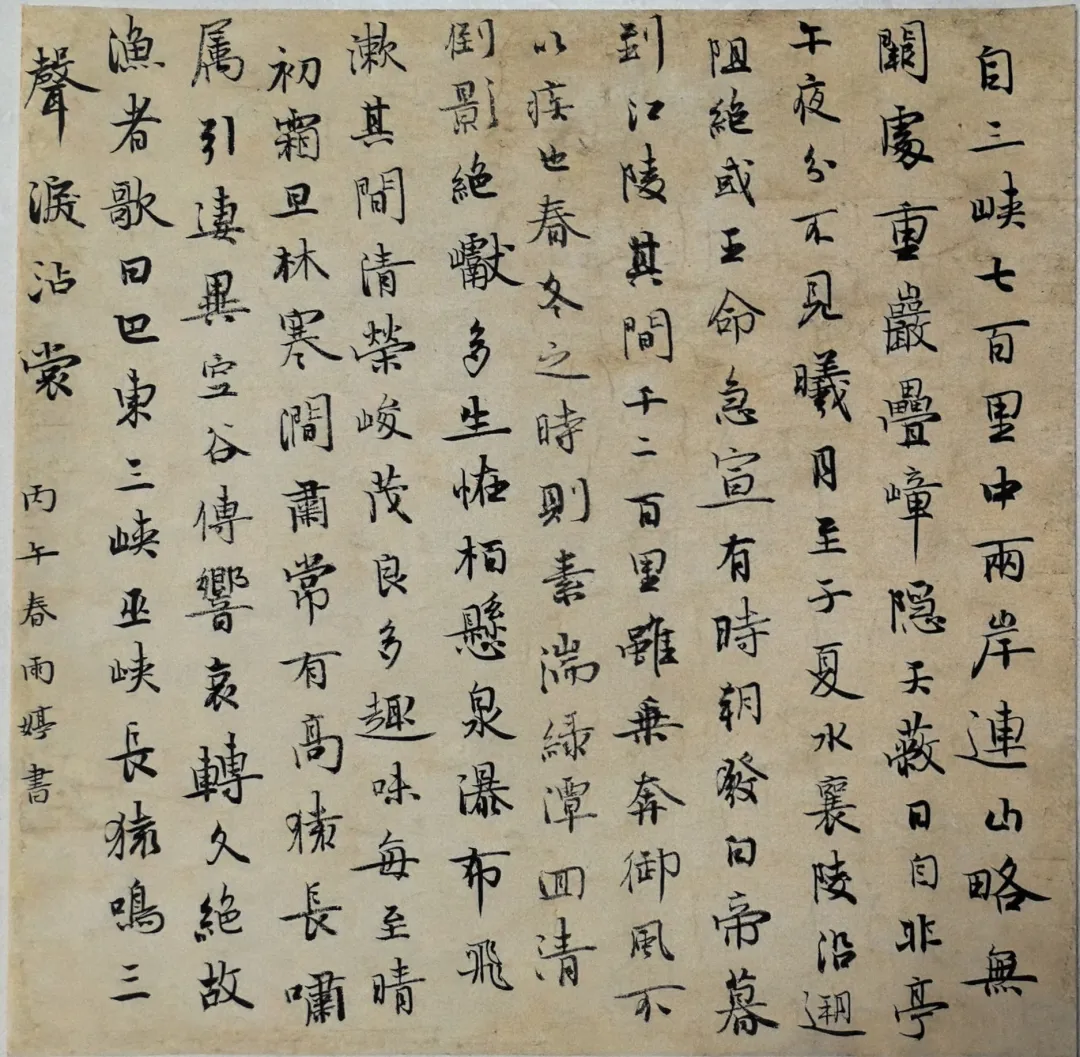 自三峡七百里中兩岸連山略無
闕處重巖疊嶂隱天蔽日自非亭
午夜分不見曦月至于夏水襄陵沿遡
阻絶或王命急宣有時朝發白帝暮
到江陵其間千二百里雖乗奔御風不
以疾也春冬之時則素湍緑潭回清
倒影絶巘多生怪柏懸泉瀑布飛
漱其間清榮峻茂良多趣味每至晴
初霜旦林寒澗肅常有高猿長嘯
属引凄異空谷傳響哀轉久絶故
漁者歌曰巴東三峡巫峡長猿鳴三
聲淚沾裳 丙午春雨婷書